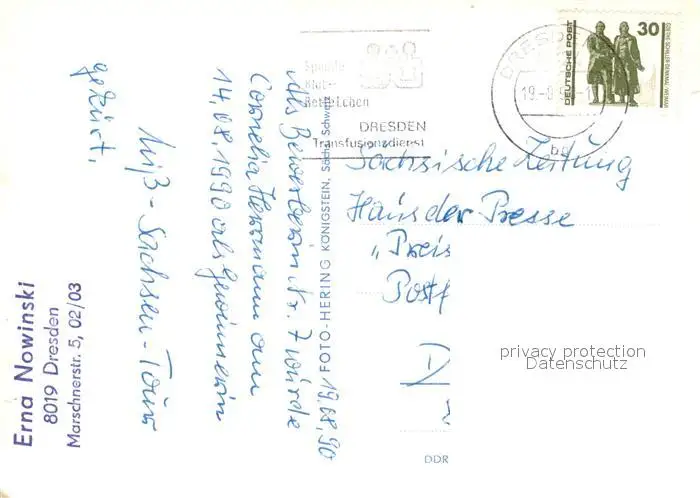 Erna Nowinski
8019 Dresden
Marschnerstr. 5, 02/03
19.08.90
Als Bewerberin Nr. 7 wurde
Cornelia Herrmann am
14.08.1990 als Gewinnerin
gekürt.
Miß-Sachsen-Tour
FOTO-HERING KÖNIGSTEIN, Sächs. Schweiz
Spende
Blut
DRESDEN
Transfusionsdienst
DRESD
19.-8
bg
DEUTSCHE POST
30
GOETHE-SCHILLER-DENKMAL · WEIMAR
Sächsische Zeitung
Haus der Presse
„Preis
Postf
D
DDR
privacy protection
Datenschutz